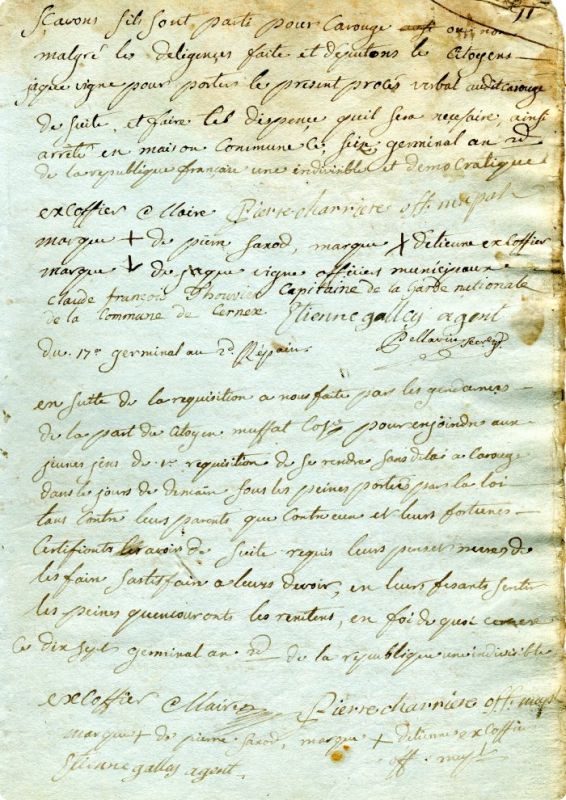 11
scavons sils sont parti pour Carouge ou non
malgré les diligences faite et députons le Citoyens
jaque vigne pour porter le present procés verbal audit Carouge
de suite, et faire les dispence quil sera necesaire, ainsi
arrêté en maison Commune ce seize germinal an 2d
de la republique française une indivisible et democratique
excoffier Maire Pierre charriere off. mupal
marque + de pierre saxod, marque X detienne excoffier
marque de jaque vigne officies municipaux
Claude françois Thouvier Capitaine de la Garde nationale
de la Commune de Cernex Etienne galley agent
du 17e germinal an 2d
en suite de la requisition a nous faite par les gendarmes
de la part du Citoyen muffat pour enjoindre aux
jeunes jens de 1re requisition de se rendre sans dela a Carouge
dans le jours de demain sous les peines portée par la loi
tans contre leurs parents que contre eux et leurs fortunes
Certifionts les avoir de suite requis leurs peres et meres de
les faire sastisfaire a leurs devoir, en leurs fesants sentir
les peines quencouronts les renitens, en foi de quoi cernex
ce dix sept germinal an 2d de la republique une indivisible
excoffier Maire Pierre charriere off. mupl
marque + de pierre saxod, marque + detienne excoffier
Etienne galley agent. off. mupl